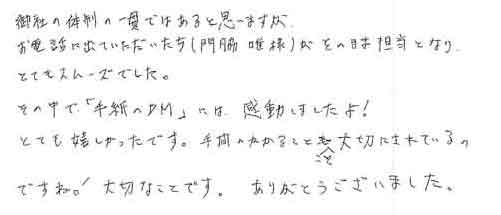 御社の体制の一貫ではあると思いますが、
お電話に出ていただいた方(門脇 唯様)がそのまま担当となり、
とてもスムーズでした。
その中で「手紙のDM」には、感動しましたよ!
とても嬉しかったです。手間のかかることを大切にされているの
ですね。! 大切なことです。ありがとうございました。